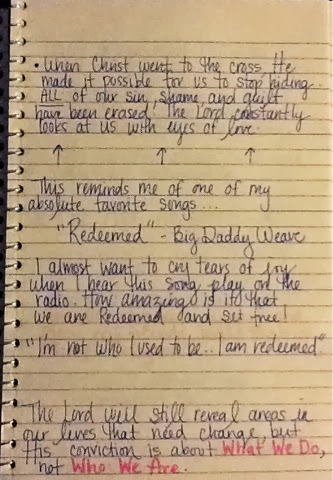 • When Christ went to the cross He
made it possible for us to stop hiding.
ALL of our sin, shame, and guilt
have been erased. The Lord constantly
looks at us with eyes of love.
↑ ↑ ↑
This reminds me of one of my
absolute favorite songs...
"Redeemed" - Big Daddy Weave
I almost want to cry tears of joy
when I hear this song play on the
radio. How amazing is it that
we are Redeemed and set free!
"I'm not who I used to be.. I am redeemed"
The Lord will still reveal areas in
our lives that need change, but
His conviction is about What We Do,
not Who We Are.